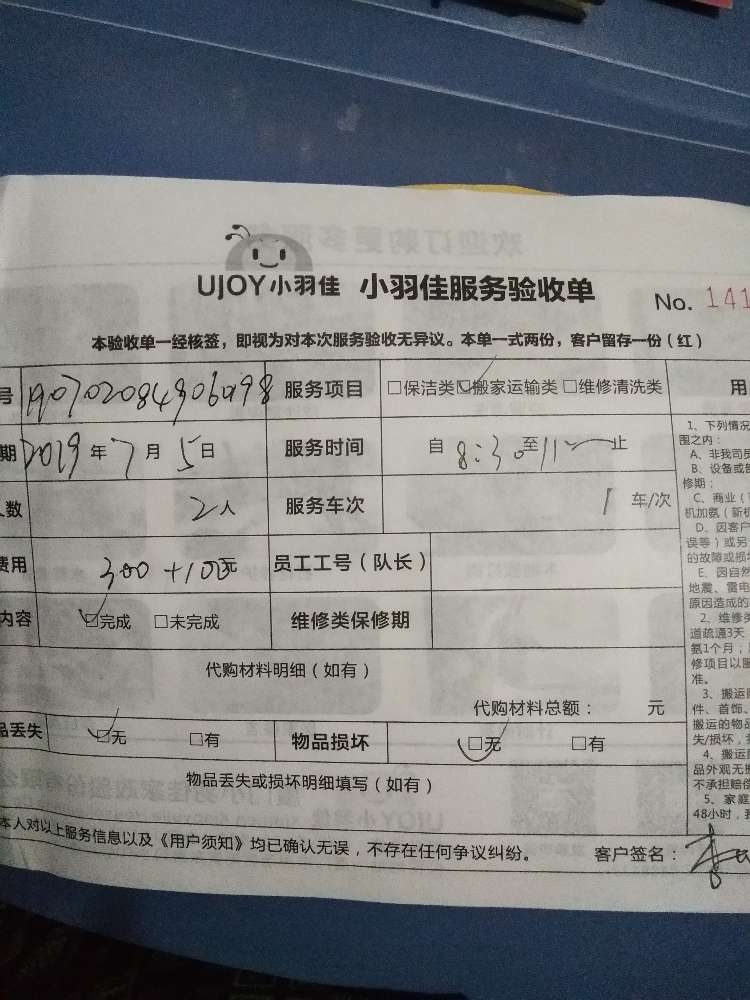 UJOY小羽佳 小羽佳服务验收单 No. 141
本验收单一经核签，即视为对本次服务验收无异议。本单一式两份，客户留存一份（红）
号 服务项目 □保洁类 ☑搬家运输类 □维修清洗类 用
期 2019年7月5日 服务时间 自 8:30 至 11 止
人数 2人 服务车次 1 车/次
费用 300+100元 员工工号（队长）
内容 ☑完成 □未完成 维修类保修期
代购材料明细（如有）
代购材料总额： 元
品丢失 ☑无 □有 物品损坏 ☑无 □有
物品丢失或损坏明细填写（如有）
本人对以上服务信息以及《用户须知》均已确认无误，不存在任何争议纠纷。 客户签名：
1、下列情况
围之内：
A、非我司员
B、设备或部
修期；
C、商业（
机加氨（新机
D、因客户
误等）或另
的故障或损坏
E、因自然
地震、雷电
原因造成的
2、维修类
道疏通3天
氨1个月；
修项目以服
准。
3、搬运
件、首饰、
搬运的物品
失/损坏，
4、搬运
品外观无
不承担赔偿
5、家庭
48小时，